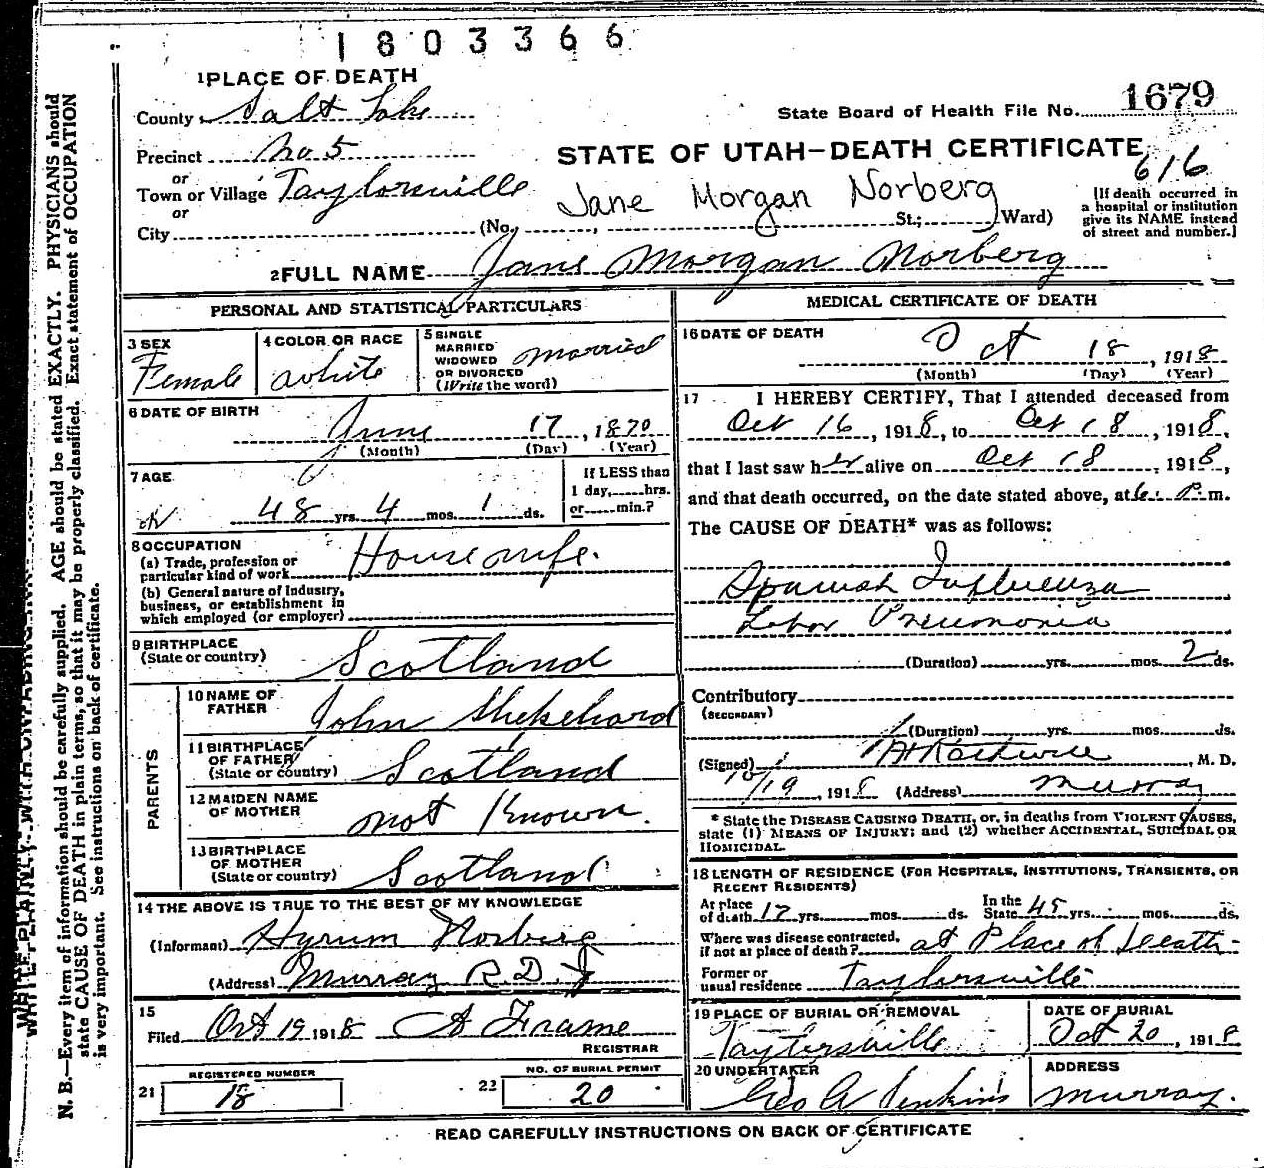 1803366
1 PLACE OF DEATH
County Salt Lake
State Board of Health File No. 1679
Precinct No 5
STATE OF UTAH—DEATH CERTIFICATE
616
or
Town or Village Taylorsville
Jane Morgan Norberg
[If death occurred in
a hospital or institution
give its NAME instead
of street and number.]
or
City (No. , St.; Ward)
2 FULL NAME Jane Morgan Norberg
PERSONAL AND STATISTICAL PARTICULARS
3 SEX
Female
4 COLOR OR RACE
White
5 SINGLE
MARRIED
WIDOWED
OR DIVORCED
(Write the word)
Married
6 DATE OF BIRTH
June 17, 1870
(Month) (Day) (Year)
7 AGE
48 yrs. 4 mos. 1 ds.
If LESS than
1 day, hrs.
or min.?
8 OCCUPATION
(a) Trade, profession or
particular kind of work
Housewife.
(b) General nature of Industry,
business, or establishment in
which employed (or employer)
9 BIRTHPLACE
(State or country)
Scotland
PARENTS
10 NAME OF
FATHER
John
11 BIRTHPLACE
OF FATHER
(State or country)
Scotland
12 MAIDEN NAME
OF MOTHER
not Known.
13 BIRTHPLACE
OF MOTHER
(State or country)
Scotland
14 THE ABOVE IS TRUE TO THE BEST OF MY KNOWLEDGE
(Informant) Hyrum Norberg
(Address) Murray R.D.
15
Filed Oct 19 1918 A Frame
REGISTRAR
21 REGISTERED NUMBER
18
22 NO. OF BURIAL PERMIT
20
MEDICAL CERTIFICATE OF DEATH
16 DATE OF DEATH
Oct 18, 1918
(Month) (Day) (Year)
17 I HEREBY CERTIFY, That I attended deceased from
Oct 16, 1918, to Oct 18, 1918,
that I last saw her alive on Oct 18, 1918,
and that death occurred, on the date stated above, at 6 P.m.
The CAUSE OF DEATH* was as follows:
Spanish Influenza
Lobar Pneumonia
(Duration) yrs. mos. 2 ds.
Contributory
(SECONDARY)
(Duration) yrs. mos. ds.
(Signed) , M. D.
10/19, 1918 (Address) Murray
* State the DISEASE CAUSING DEATH, or, in deaths from VIOLENT CAUSES,
state (1) MEANS OF INJURY; and (2) whether ACCIDENTAL, SUICIDAL OR
HOMICIDAL.
18 LENGTH OF RESIDENCE (FOR HOSPITALS, INSTITUTIONS, TRANSIENTS, OR
RECENT RESIDENTS)
At place
of death 17 yrs. mos. ds.
In the
State 45 yrs. mos. ds.
Where was disease contracted,
if not at place of death? at Place of Death
Former or
usual residence Taylorsville
19 PLACE OF BURIAL OR REMOVAL
Taylorsville
DATE OF BURIAL
Oct 20, 1918
20 UNDERTAKER
Geo A Jenkins
ADDRESS
Murray.
READ CAREFULLY INSTRUCTIONS ON BACK OF CERTIFICATE
N. B.—Every item of information should be carefully supplied. AGE should be stated EXACTLY. PHYSICIANS should
state CAUSE OF DEATH in plain terms, so that it may be properly classified. Exact statement of OCCUPATION
is very important. See instructions on back of certificate.